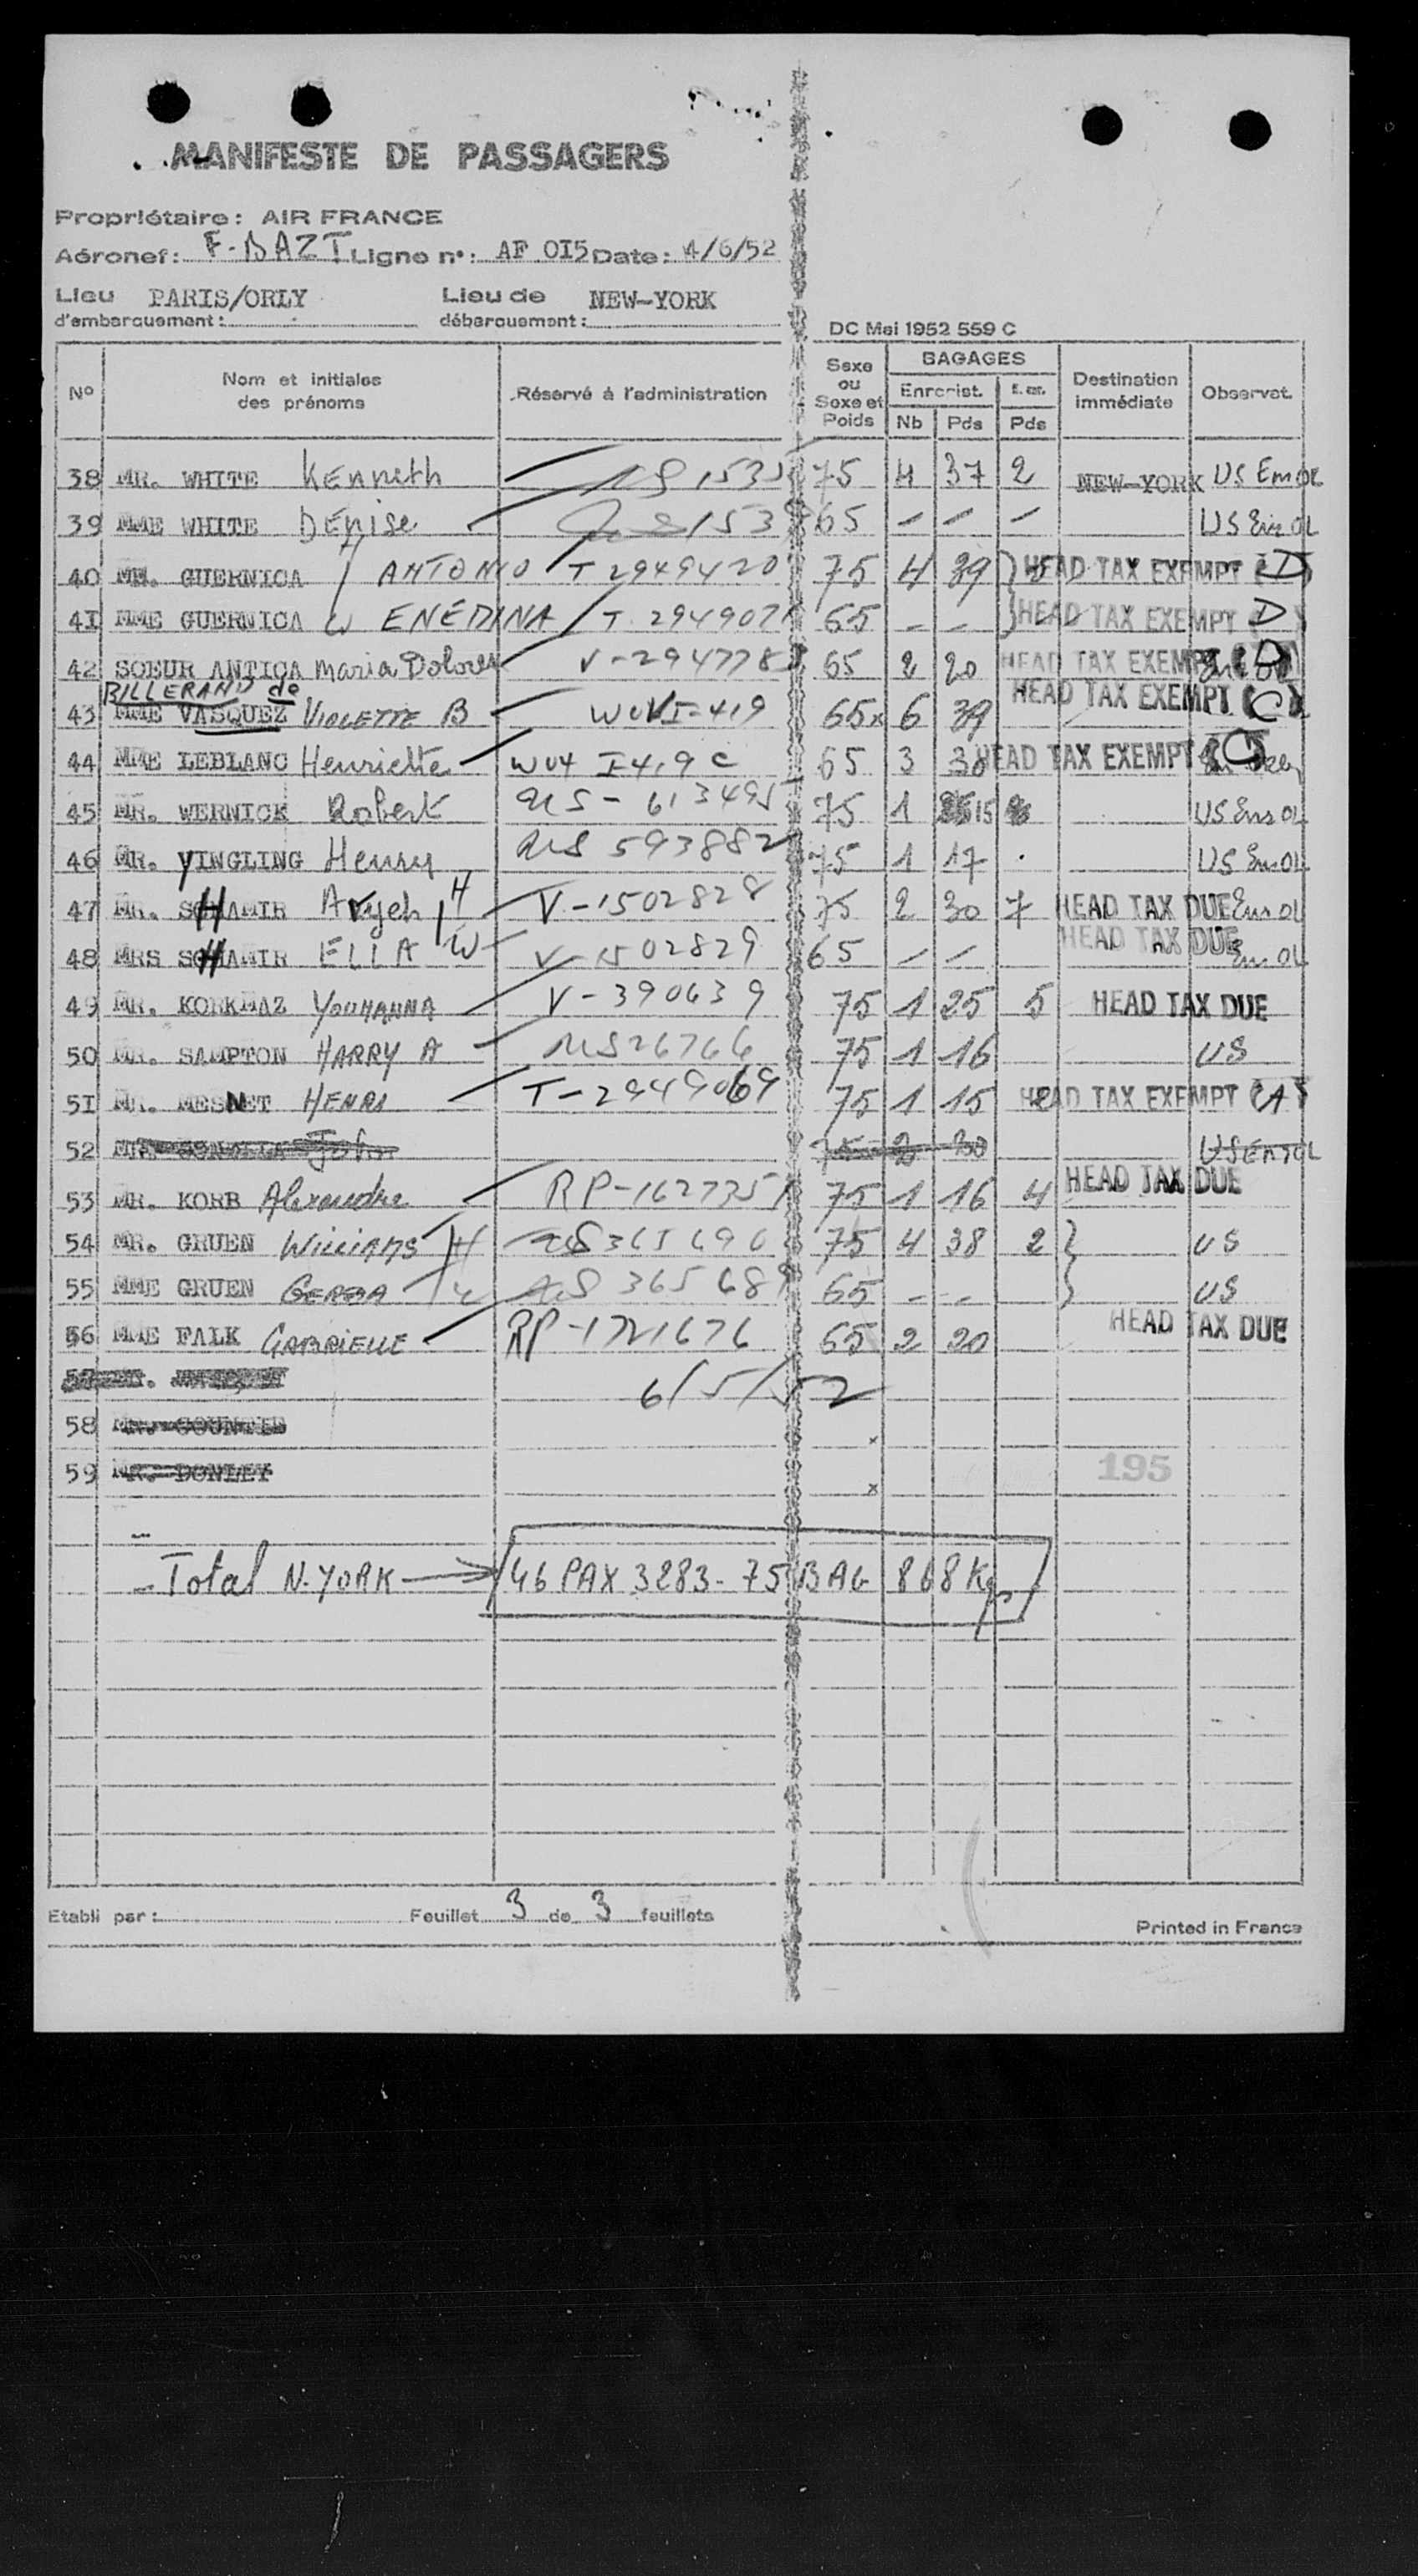 MANIFESTE DE PASSAGERS
Propriétaire: AIR FRANCE
Aéronef: F-BAZT Ligne n°: AF 0I5 Date: 4/6/52
Lieu d'embarquement: PARIS/ORLY Lieu de débarquement: NEW-YORK
DC Mai 1952 559 C
N° Nom et initiales des prénoms Réservé à l'administration Sexe ou Sexe et Poids BAGAGES Enregist. Nb Pds Pds Destination immédiate Observat.
38 MR. WHITE Kenneth 75 4 37 2 NEW-YORK US
39 MME WHITE Denise 65 — — — US
40 MR. GUERNICA H ANTONIO T 2949420 75 4 39 HEAD TAX EXEMPT (D)
4I MME GUERNICA W ENEDINA T. 65 — — HEAD TAX EXEMPT (D)
42 SOEUR ANTICA Maria Dolores 65 2 20 HEAD TAX EXEMPT (D)
BILLERAND de
43 MME VASQUEZ VIOLETTE B 65x 6 39 HEAD TAX EXEMPT (C)
44 MME LEBLANC Henriette 65 3 30 HEAD TAX EXEMPT (C)
45 MR. WERNICK Robert US-613495 75 1 15 US
46 MR. YINGLING Henry US 593882 75 1 17 US
47 MR. SHAMIR Aryeh H V-1502828 75 2 30 7 HEAD TAX DUE
48 MRS SHAMIR ELLA W V-1502829 65 — — HEAD TAX DUE
49 MR. KORKMAZ YOUHANNA V-390639 75 1 25 5 HEAD TAX DUE
50 MR. SAMPTON HARRY A US26766 75 1 16 US
5I MR. MESNET HENRI T-2949069 75 1 15 HEAD TAX EXEMPT (A)
52 John 75 2 30 US
53 MR. KORB Alexandre RP-1627351 75 1 16 4 HEAD TAX DUE
54 MR. GRUEN WILLIAMS H US 75 4 38 2 US
55 MME GRUEN GERDA W US 65 — — US
56 MME FALK GABRIELLE RP-1721676 65 2 20 HEAD TAX DUE
6/5/52
58 x
59 MR. DONLEY x
195
Total N.YORK 46 PAX 3283 - 75 BAG 868 Kgs
Etabli par: Feuillet 3 de 3 feuillets
Printed in France